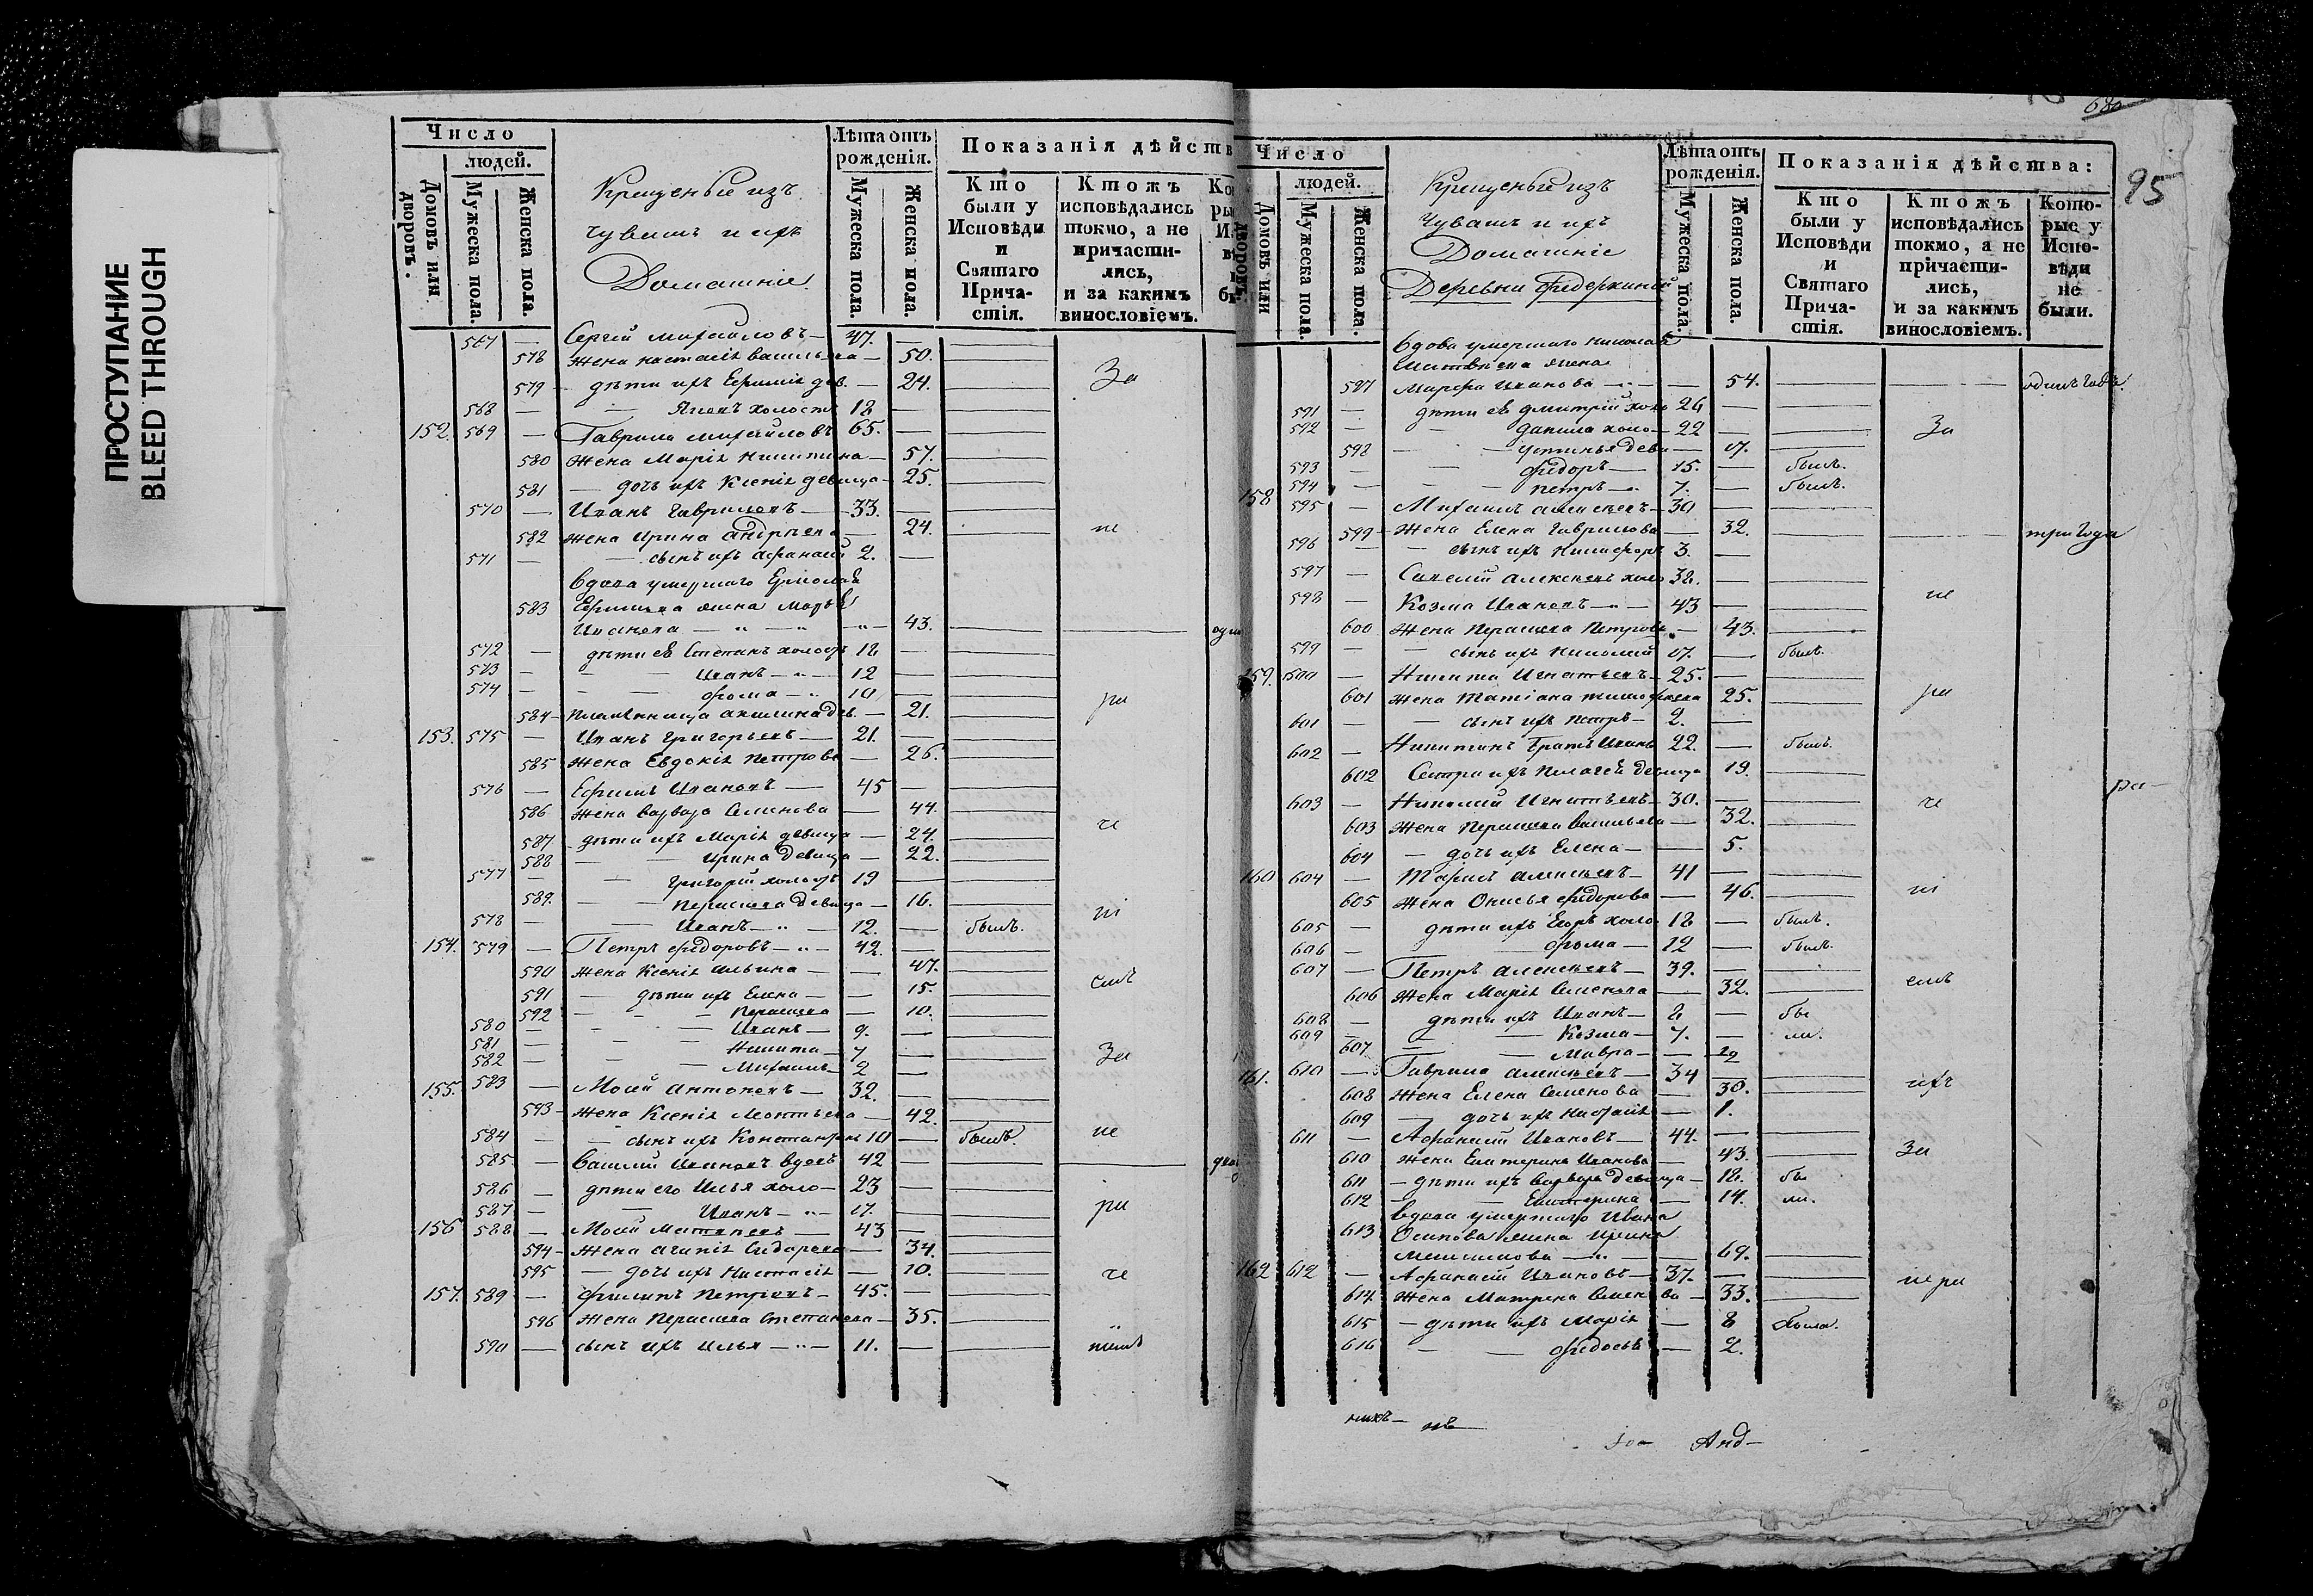 ПРОСТУПАНИЕ
BLEED THROUGH
Число
людей.
Домовъ или дворовъ.
Мужеска пола.
Женска пола.
Крещеные изъ
чувашъ и ихъ
Домашніе.
Лѣта отъ рожденія.
Мужеска пола.
Женска пола.
Показанія дѣйств
Кто были у Исповѣди и Святаго Прича-стія.
Ктожъ исповѣдались токмо, а не причасти-лись, и за какимъ винословіемъ.
567 — Сергій Михайловъ — 47. —
578 Жена Настасія Васильева — 50.
579 — дѣти ихъ Евфимія дев. — 24. За
568 — — холостъ 18 —
152. 569 — Гаврила Михайловъ 65. —
580 Жена Марія Никитина — 57.
581 — дочь ихъ Ксенія девица — 25.
570 — Иванъ Гавриловъ — 33. —
582 Жена Ирина Андреева — 24. не
571 — — сынъ ихъ Афанасій 2. —
вдова умершаго Ермолая
583 Ефимова жена Марья
Иванова — 43.
572 — дѣти её Степанъ холостъ 18 —
573 — — Иванъ — 12 —
574 — — Фома — 10 —
584 — племянница Акилина дев. — 21. ра
153. 575 — Иванъ Григорьевъ — 21. —
585 Жена Евдокія Петрова — 26.
576 — Ефимъ Ивановъ — 45 —
586 Жена Варвара Семенова — 44.
587 дѣти ихъ Марія девица — 24. че
588 — — Ирина девица — 22.
577 — — Григорій холостъ 19 —
589. — — Параскева девица — 16.
578 — — Иванъ — 12. — былъ.
154. 579 — Петръ Федоровъ — 42. —
590 Жена Ксенія Ильина — 47.
591 — дѣти ихъ Елена — 15.
592 — — Параскева — 10.
580 — — Иванъ — 9. —
581 — — Никита — 7 —
582 — — Михаилъ — 2 — За
155. 583 — Мосей Антоновъ — 32. —
593 — Жена Ксенія Леонтьева — 42.
584 — — сынъ ихъ Константинъ 10 — былъ. не
585 — Василій Ивановъ вдовъ 42 —
586 — дѣти его Илья холо — 23 —
587 — — Иванъ — 17. — ра
156 588 — Мосей Матвеевъ — 43 —
594 — Жена Агапія Сидорова — 34.
595 — дочь ихъ Настасія — 10. че
157. 589 — Филипъ Петровъ — 45. —
596 Жена Параскева Степанова — 35.
590 — сынъ ихъ Илья — 11. —
680
95
Число
людей.
Домовъ или дворовъ.
Мужеска пола.
Женска пола.
Крещеные изъ
Чувашъ и ихъ
Домашніе
Деревни
Лѣта отъ рожденія.
Мужеска пола.
Женска пола.
Показанія дѣйства:
Кто были у Исповѣди и Святаго Прича-стія.
Ктожъ исповѣдались токмо, а не причасти-лись, и за какимъ винословіемъ.
Кото-рые у Испо-вѣди не были.
вдова умершаго Николая
жена
597 Марфа Иванова — 54. одинъ годъ.
591 — дѣти её Дмитрій холо 24 —
592 — — Данила холо — 22 — За
598 — — Устинья деви — 17.
593 — — Федоръ — 15. — былъ.
594 — — Петръ — 7. — былъ.
158 595 — Михаилъ Алексеевъ — 30
599 — Жена Елена Гаврилова — 32. три года
596 — — сынъ ихъ Никифоръ 3. —
597 — Савелій Алексеевъ холо 32. —
598 — Козма Ивановъ — 43 — не
600 Жена Параскева Петрова — 43.
599 — — сынъ ихъ Николай 17. — былъ.
159. 600 — Никита Игнатьевъ — 25. —
601 Жена Татіана Тимофеева 25. ра
601 — — сынъ ихъ Петръ — 2. —
602 — Никитинъ братъ Иванъ 22. — былъ.
602 Сестра ихъ Пелагея девица 19.
603 — Николай Игнатьевъ — 30. — че
603 Жена Параскева Васильева — 32.
604 — дочь ихъ Елена — 5.
160 604 — Тарасъ Алексеевъ — 41 —
605 Жена Онисья Федорова — 46.
605 — дѣти ихъ Егоръ холо 18 — былъ.
606 — — Фома — 12 — былъ.
607 — Петръ Алексеевъ — 39. —
606 Жена Марія Семенова — 32.
608 — дѣти ихъ Иванъ — 8 — бы
609 — — Козма — 7. — ли.
607 — — Мавра —
161. 610 — Гаврила Алексеевъ — 34
608 Жена Елена Семенова — 30. ихъ
609 — дочь ихъ Настасія — 1.
611 — Афанасій Ивановъ — 44. —
610 Жена Екатерина Иванова — 43. За
611 — дѣти ихъ Варвара девица — 18. бы
612 — Екатерина — 14. ли.
вдова умершаго Ивана
613 Осипова жена Ирина
— 69.
162 612 — Афанасій Ивановъ — 37. —
614 Жена Матрена Семенова — 33.
615 — дѣти ихъ Марія — 8 была.
616 — — Федосья — 2.
Анд—